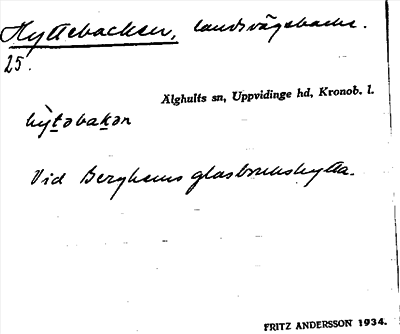 Hyttebacken, landsvägsbacke.
25.
Älghults sn, Uppvidinge hd, Kronob. l.
hỳt̲əbak̲ən
Vid Berghems glasbrukshytta.
FRITZ ANDERSSON 1934.